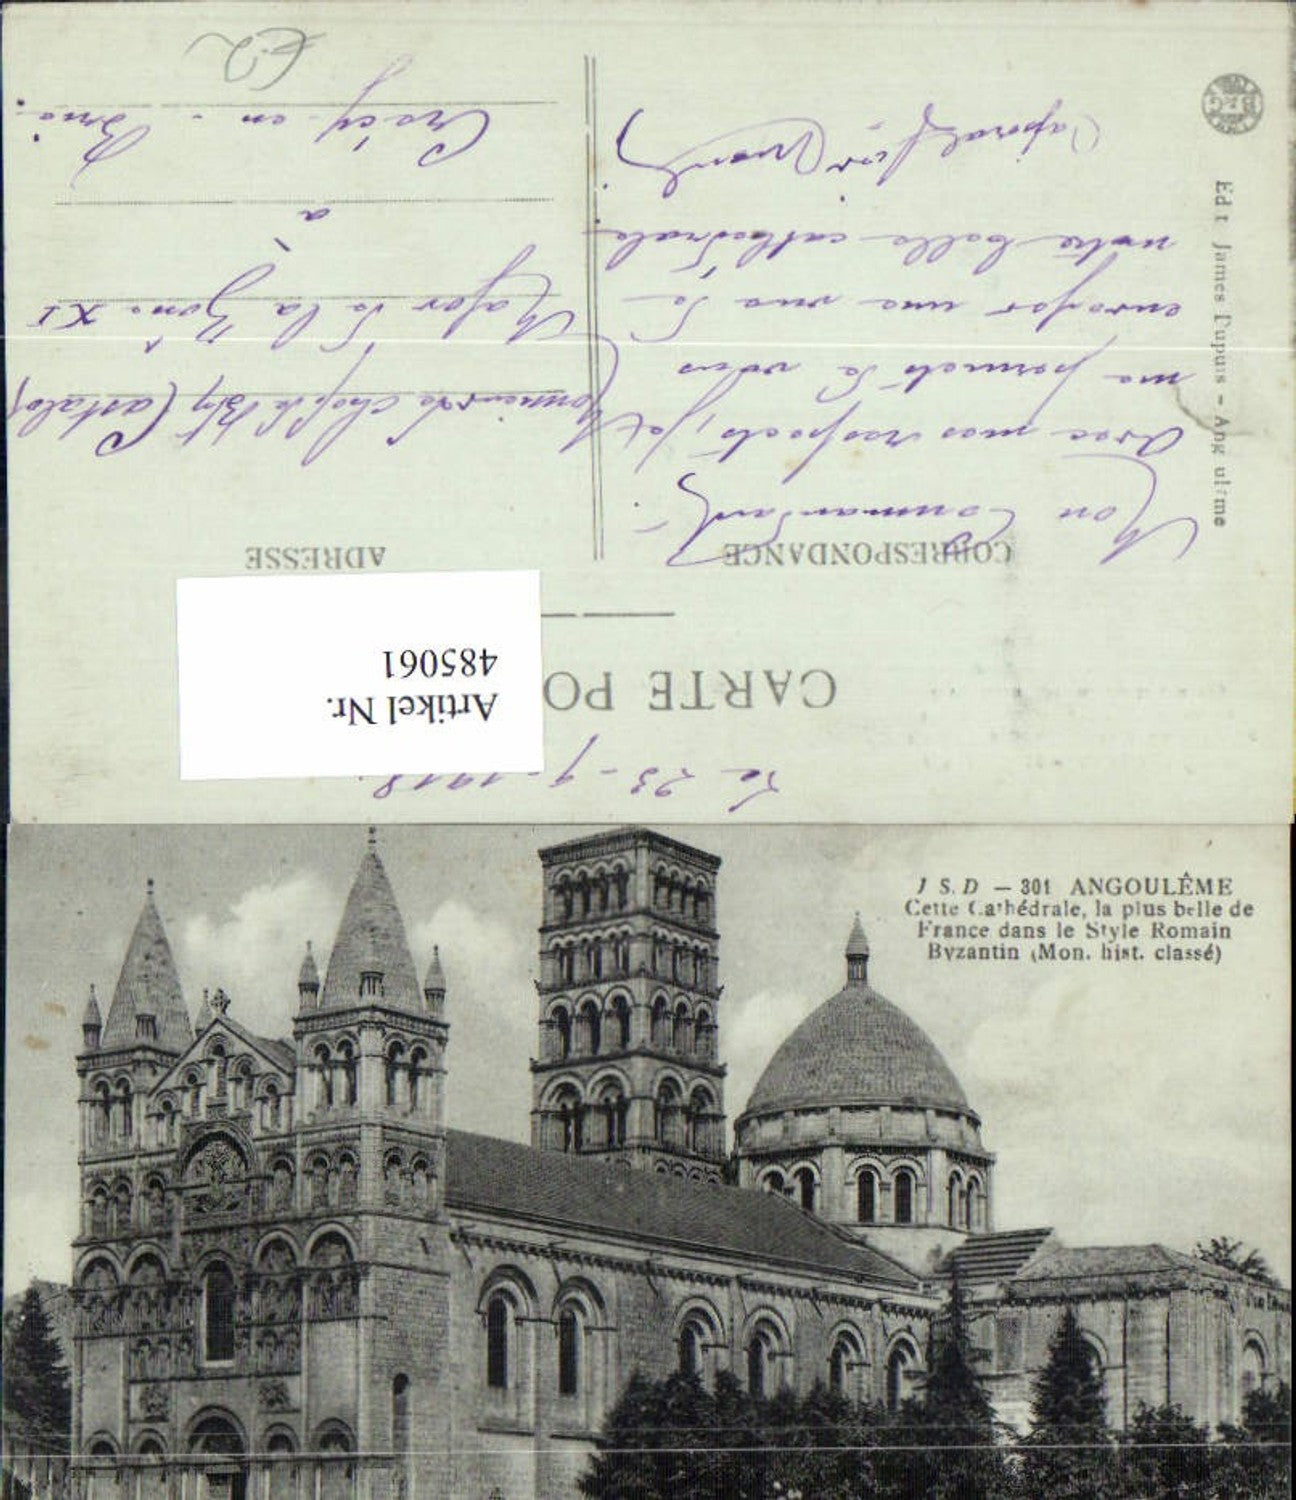 Le 23-9-1918.
CARTE PO
Artikel Nr.
485061
CORRESPONDANCE
ADRESSE
Mon Commandant.
Avec mes respects, je
me permets de vous
envoyer une vue de
notre belle cathédrale.
Caporal
Monsieur le Chef de
Major de la Zone XI
à
Crécy-en-Brie.
Edit James Dupuis - Angoulême
B&G
J S. D - 301 ANGOULÊME
Cette Cathédrale, la plus belle de
France dans le Style Romain
Byzantin (Mon. hist. classé)